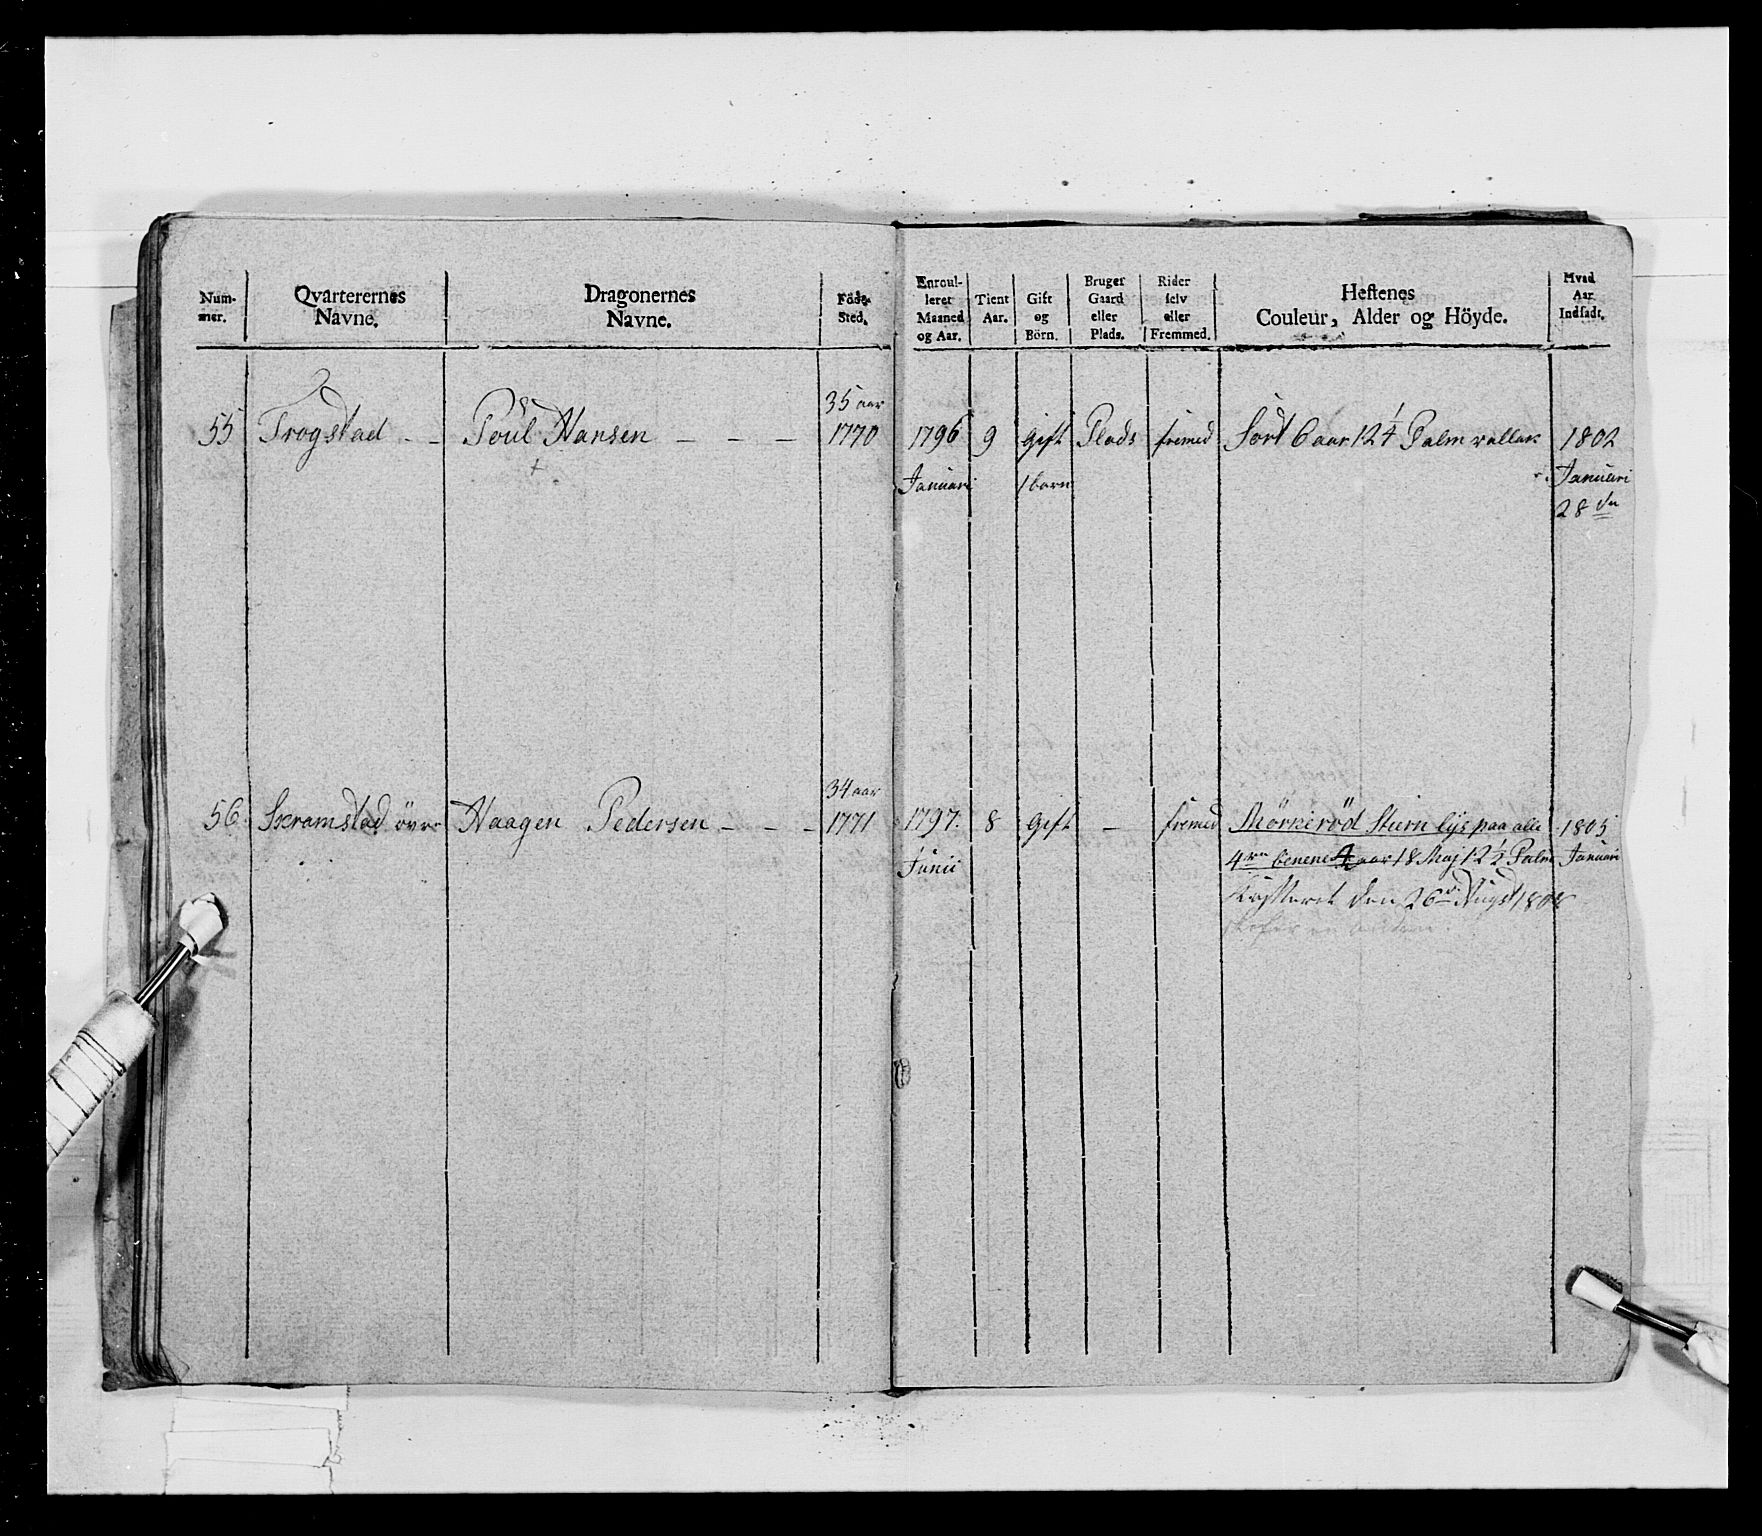 Num-
mer.
Qvarterernes
Navne.
Dragonernes
Navne.
Föde
Sted.
Enroul-
leret
Maaned
og Aar.
Tient
Aar.
Gift
og
Börn.
Bruger
Gaard
eller
Plads.
Rider
selv
eller
Fremmed.
Hestenes
Couleur, Alder og Höyde.
Hvad
Aar
Indsadt.
35 aar
55 Trogstad - - Poül Hansen - - - 1770 1796 9 Gift Plads fremed Sort 6 aar 12 1/4 Palm vallak 1802
Januari 1 barn Januari
28 de
34 aar
56. Skramstad övre Haagen Pedersen - - - 1771 1797. 8 Gift - fremed Mörkeröd Stiern lys paa alle 1805
Junii 4re benene 4 aar 18 Maj 12 1/2 Palm Januari
Kasseret den 26de Augst 1808